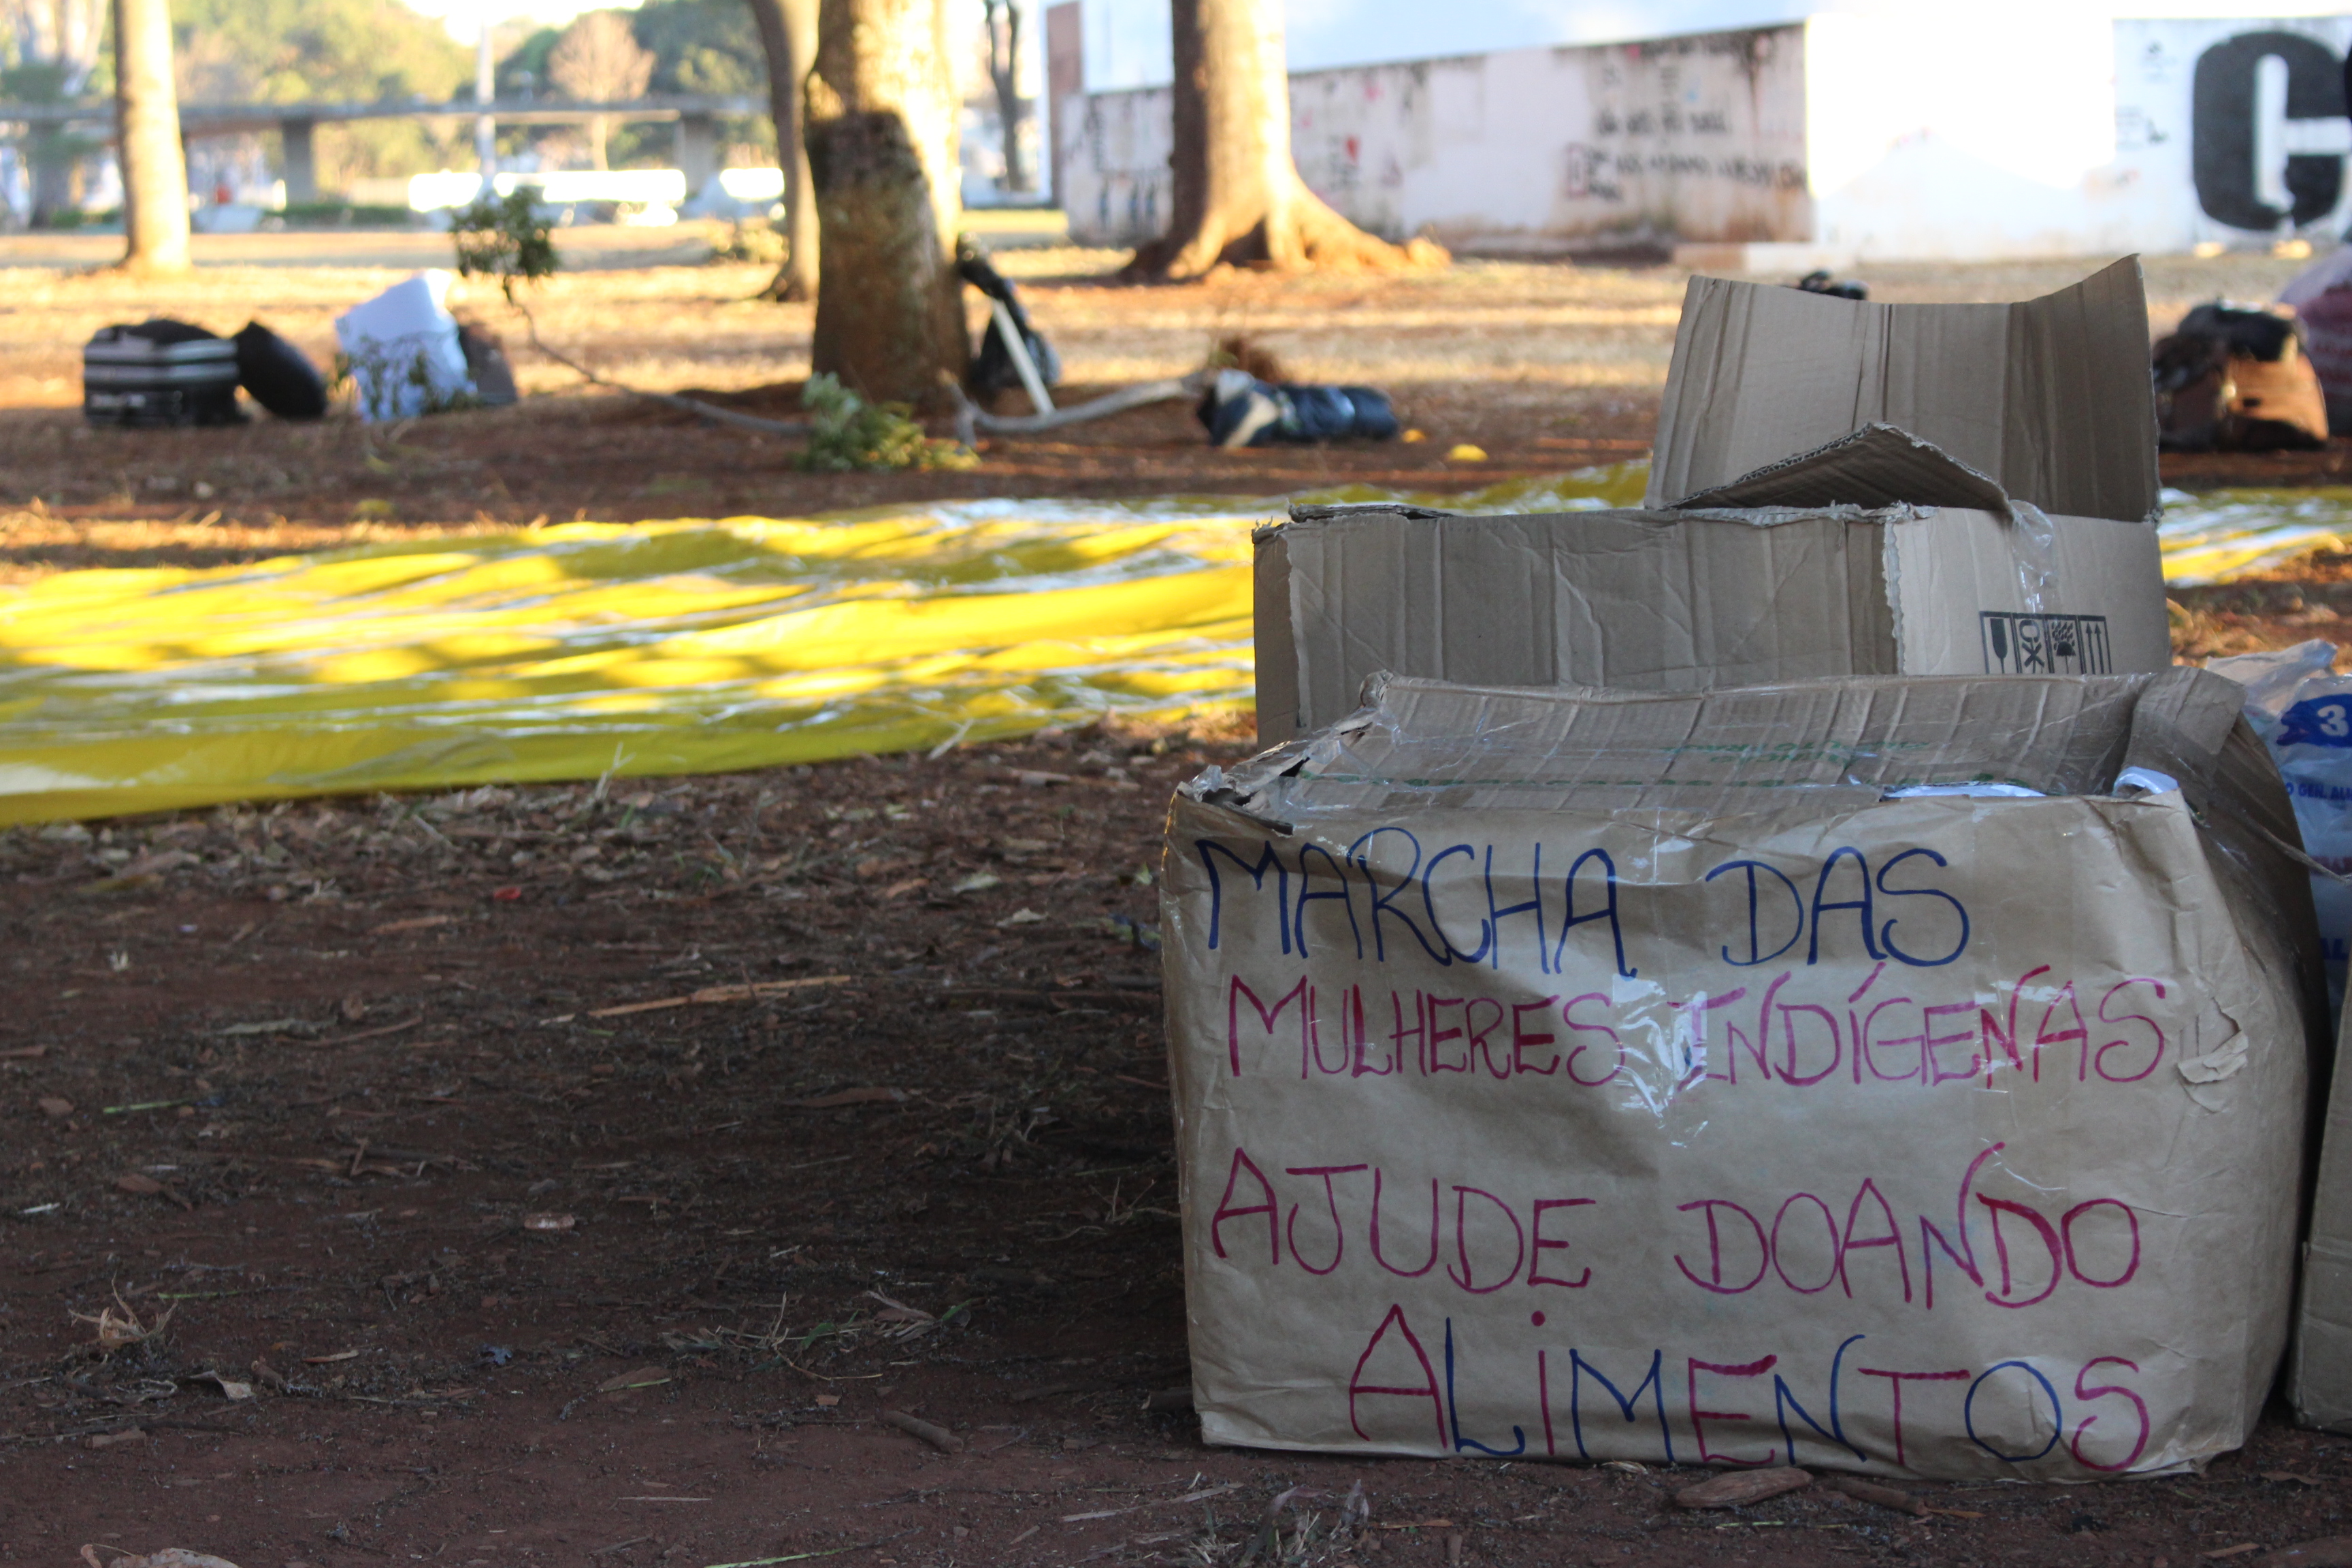 C
3
MARCHA DAS
MULHERES INDÍGENAS
AJUDE DOANDO
ALiMENTOS